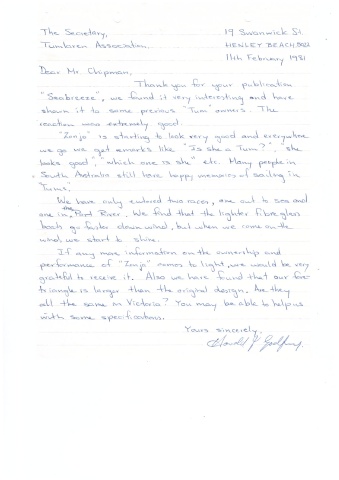 The Secretary,
Tumlaren Association.
19 Swanwick St.
HENLEY BEACH. 5022
11th February 1981
Dear Mr. Chapman,
Thank you for your publication
"Seabreeze", we found it very interesting and have
shown it to some previous "Tum" owners. The
reaction was extremely good.
"Zonjo" is starting to look very good and everywhere
we go we get remarks like "Is she a Tum?", "she
looks good", "which one is she" etc. Many people in
South Australia still have happy memories of sailing in
Tums.
We have only entered two races, one out to sea and
one in the Port River. We find that the lighter fibreglass
boats go faster down wind, but when we come on the
wind, we start to shine.
If any more information on the ownership and
performance of "Zonjo" comes to light, we would be very
grateful to receive it. Also we have found that our fore
triangle is larger than the original design. Are they
all the same in Victoria? You may be able to help us
with some specifications.
Yours sincerely,
Harold